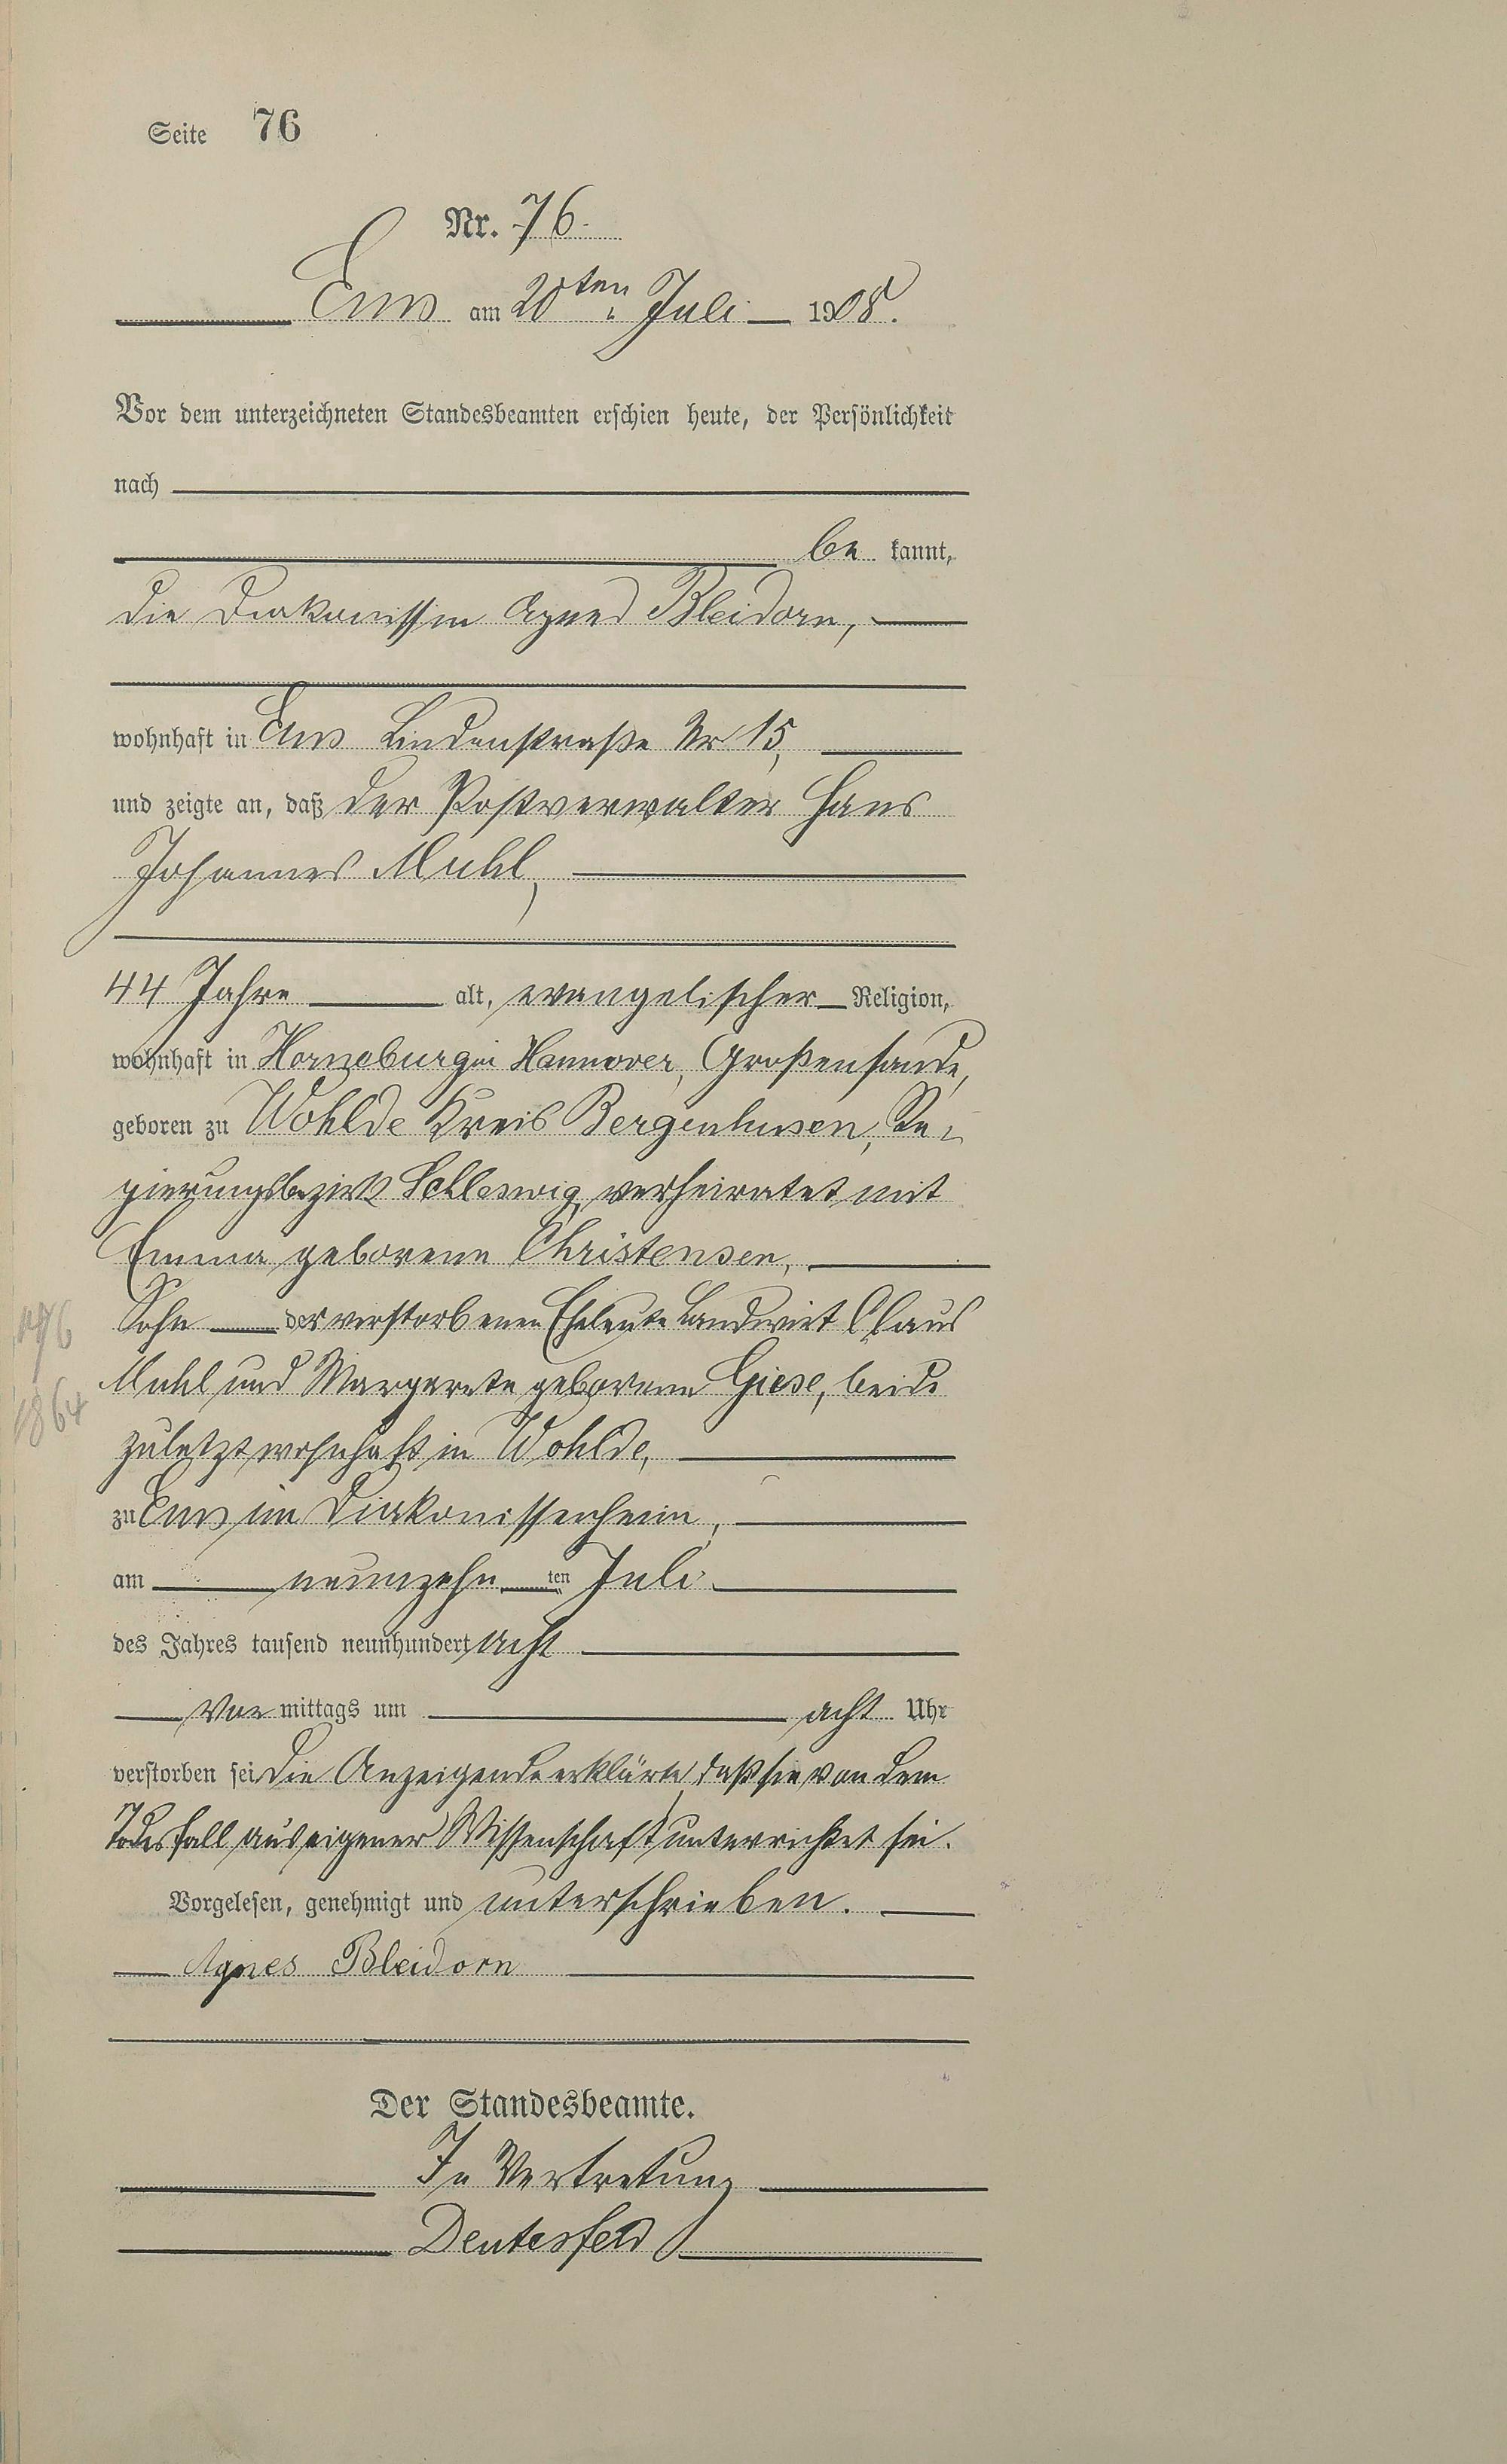 Seite 76
Nr. 76.
Ems am 20ten Juli 1908.
Vor dem unterzeichneten Standesbeamten erschien heute, der Persönlichkeit
nach
be kannt,
die Diakonissin Agnes Bleidorn,
wohnhaft in Ems Lindenstraße Nr 15,
und zeigte an, daß der Postverwalter Hans
Johannes Muhl,
44 Jahre alt, evangelischer Religion,
wohnhaft in Horneburg in Hannover, Großensande,
geboren zu Wohlde Kreis Bergenhusen, Re-
gierungsbezirk Schleswig, verheiratet mit
Emma geborene Christensen,
Sohn der verstorbenen Eheleute Landwirt Claus
Muhl und Margareta geborene Giese, beide
zuletzt wohnhaft in Wohlde,
zu Ems im Diakonissenheim,
am neunzehn ten Juli
des Jahres tausend neunhundert acht
Vor mittags um acht Uhr
verstorben sei. Die Anzeigende erklärte, daß sie von dem
Todesfall aus eigener Wissenschaft unterrichtet sei.
Vorgelesen, genehmigt und unterschrieben.
Agnes Bleidorn
Der Standesbeamte.
In Vertretung
Deutesfeld
1864